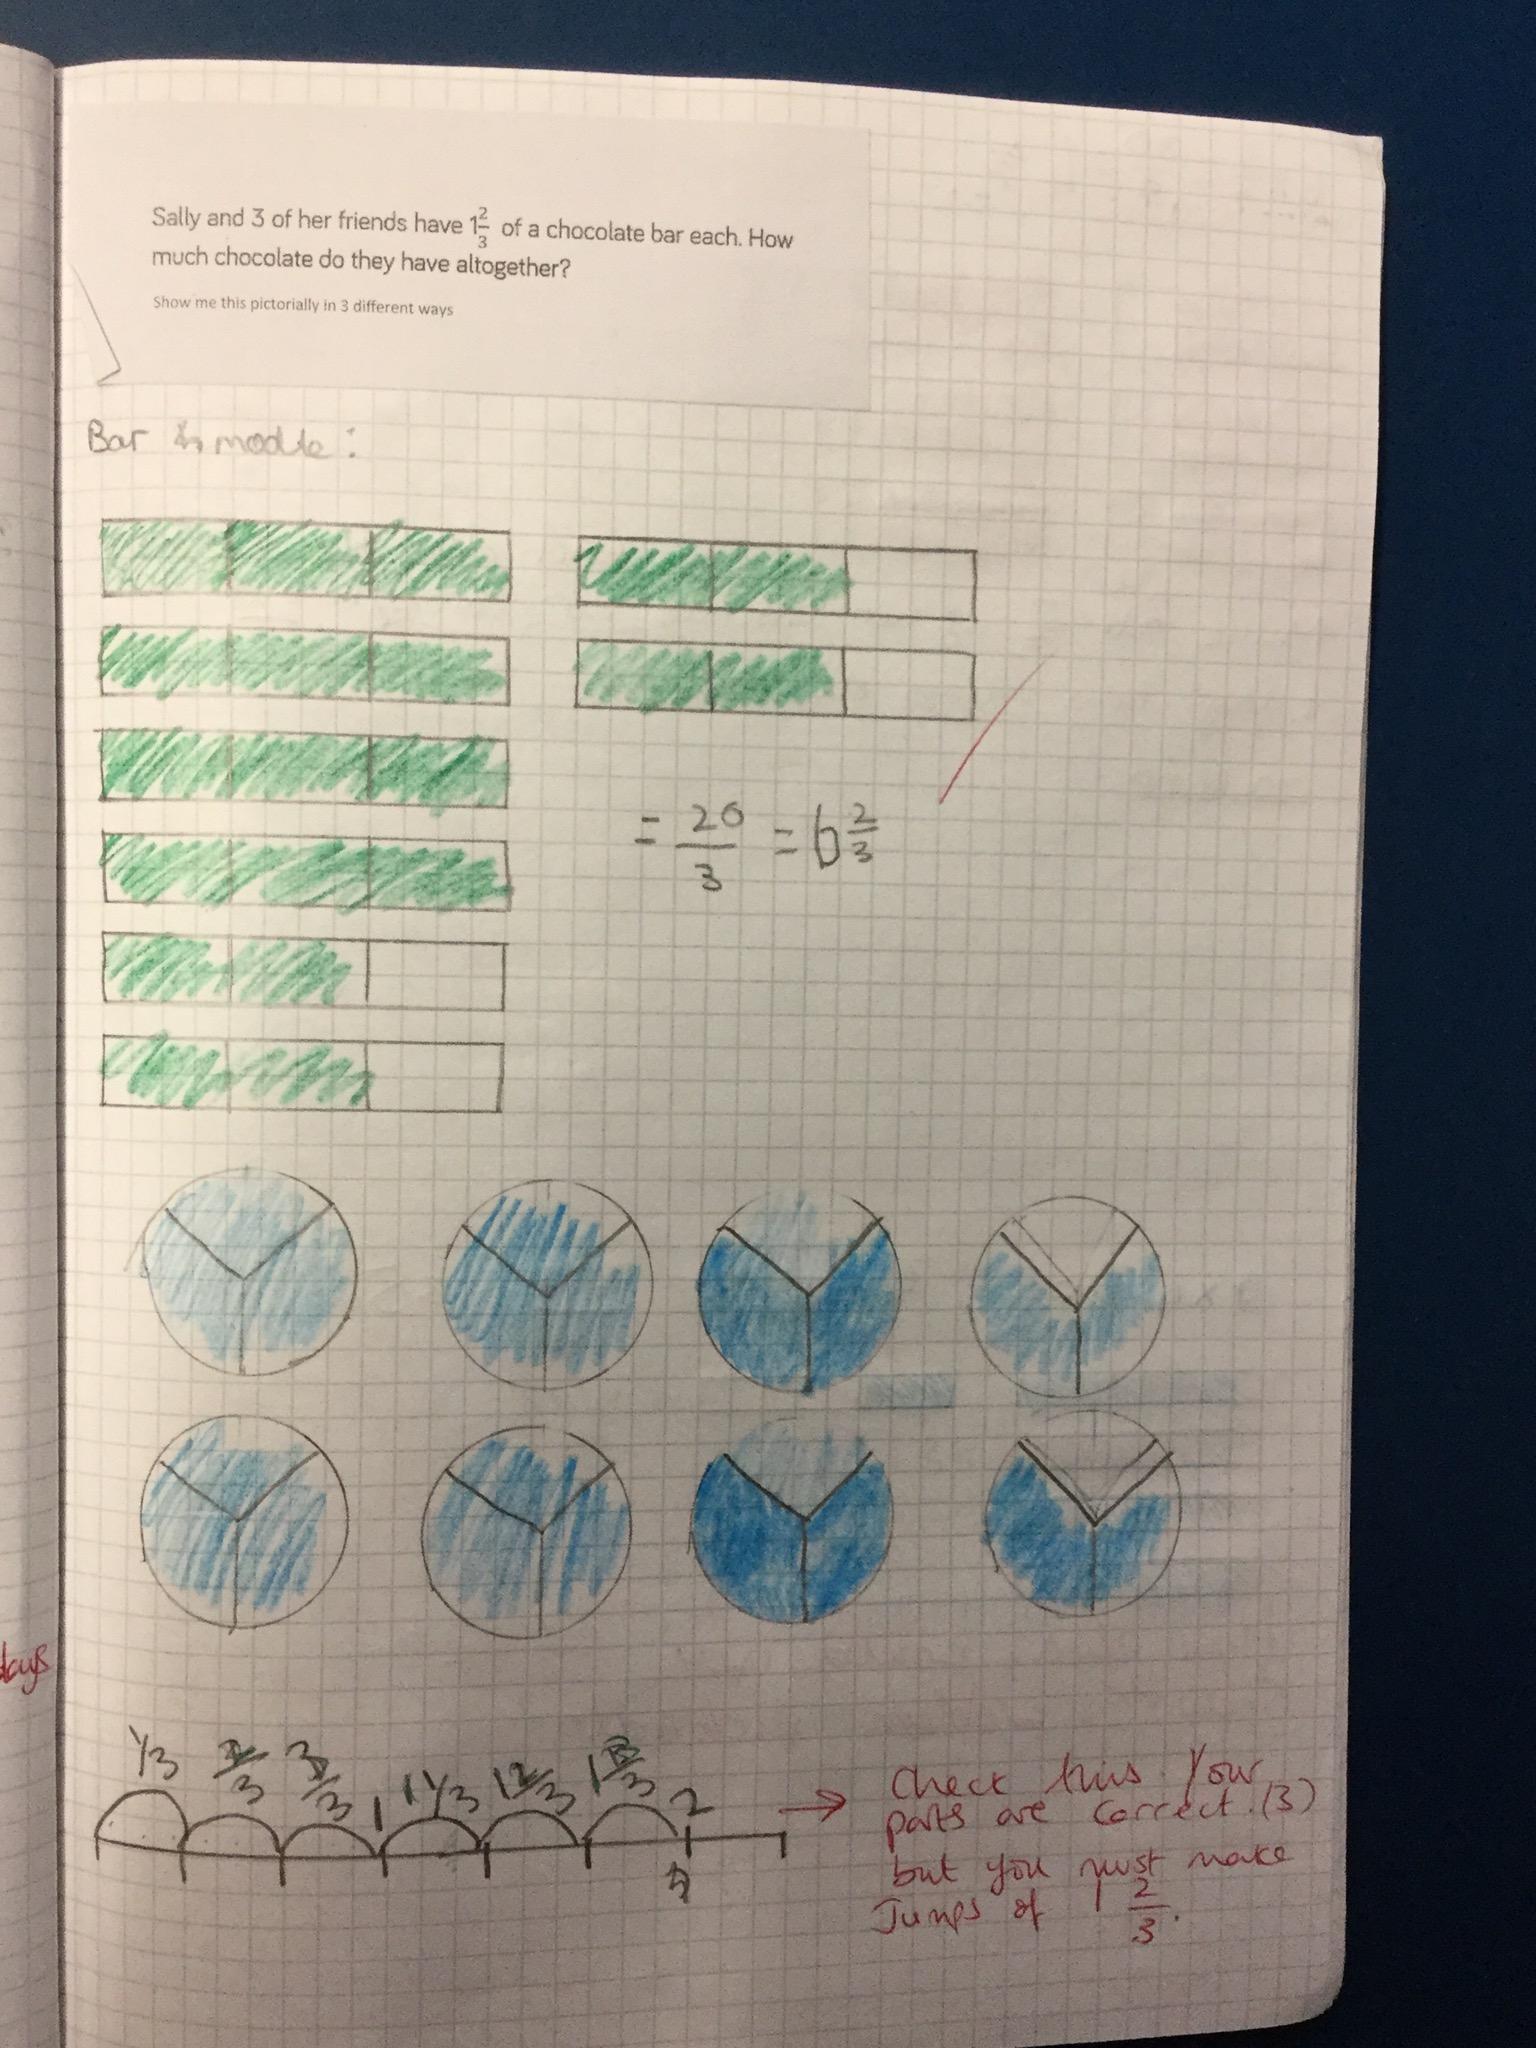 Sally and 3 of her friends have 1 2/3 of a chocolate bar each. How
much chocolate do they have altogether?
Show me this pictorially in 3 different ways
Bar modle:
= 20/3 = 6 2/3
days
1/3 2/3 3/3 1 1 1/3 1 2/3 1 3/3 2
Check this. Your
parts are correct. (3)
but you must make
Jumps of 1 2/3.